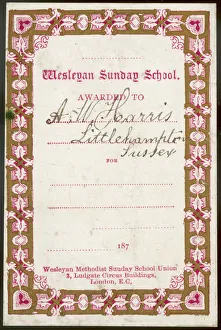 Wesleyan Sunday School.
AWARDED TO
A. W. Harris
Littlehampton
Sussex
FOR
187
Wesleyan Methodist Sunday School Union
2, Ludgate Circus Buildings,
London, E.C.